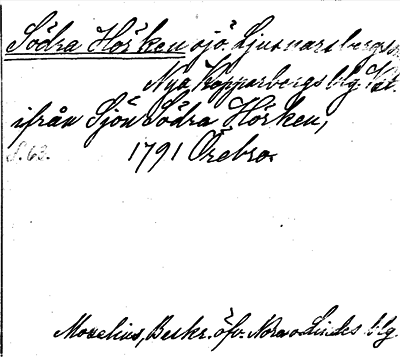 Södra Hörken sjö. Ljusnarsbergs
Nya Kopparbergs blg.
ifrån Sjön Södra Hörken,
S. 63. 1791 Örebro.
Moxelius, Beskr. öfv. Nora o. Lindes blg.